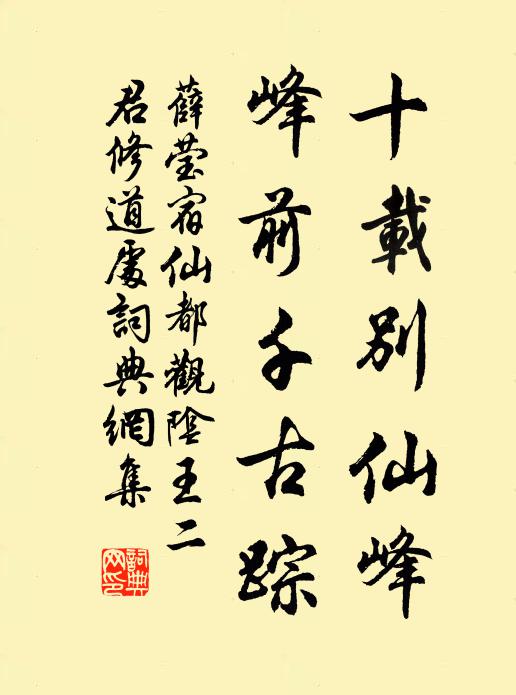 十載別仙峰
峰前千古踪
薛瑩宿仙都觀陰王二
君修道處詞典網集
詞典網印